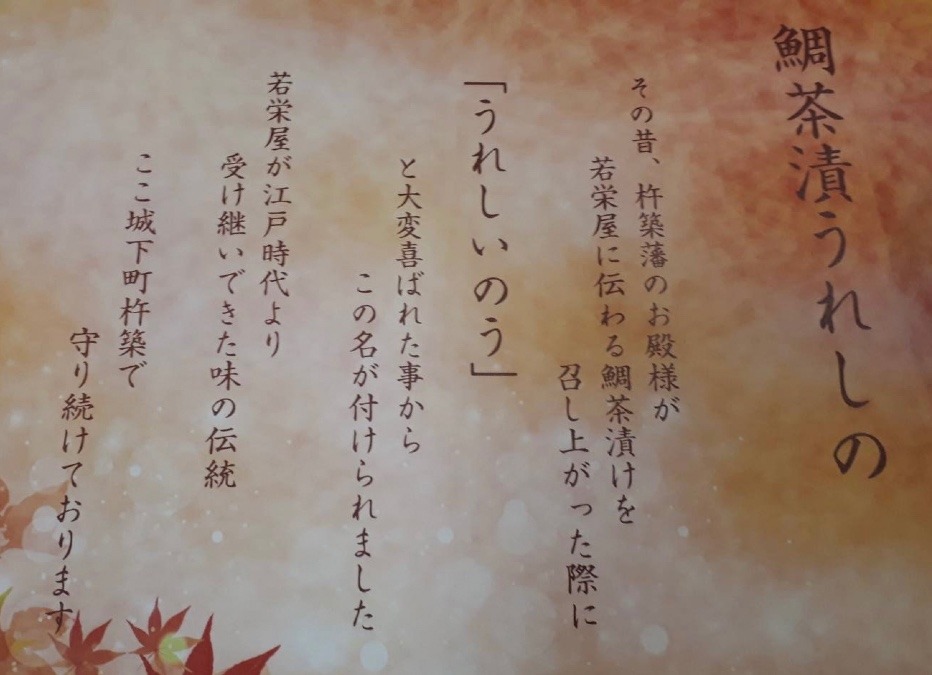 鯛茶漬うれしの
その昔、杵築藩のお殿様が
若栄屋に伝わる鯛茶漬けを
召し上がった際に
「うれしいのう」
と大変喜ばれた事から
この名が付けられました
若栄屋が江戸時代より
受け継いできた味の伝統
ここ城下町杵築で
守り続けております